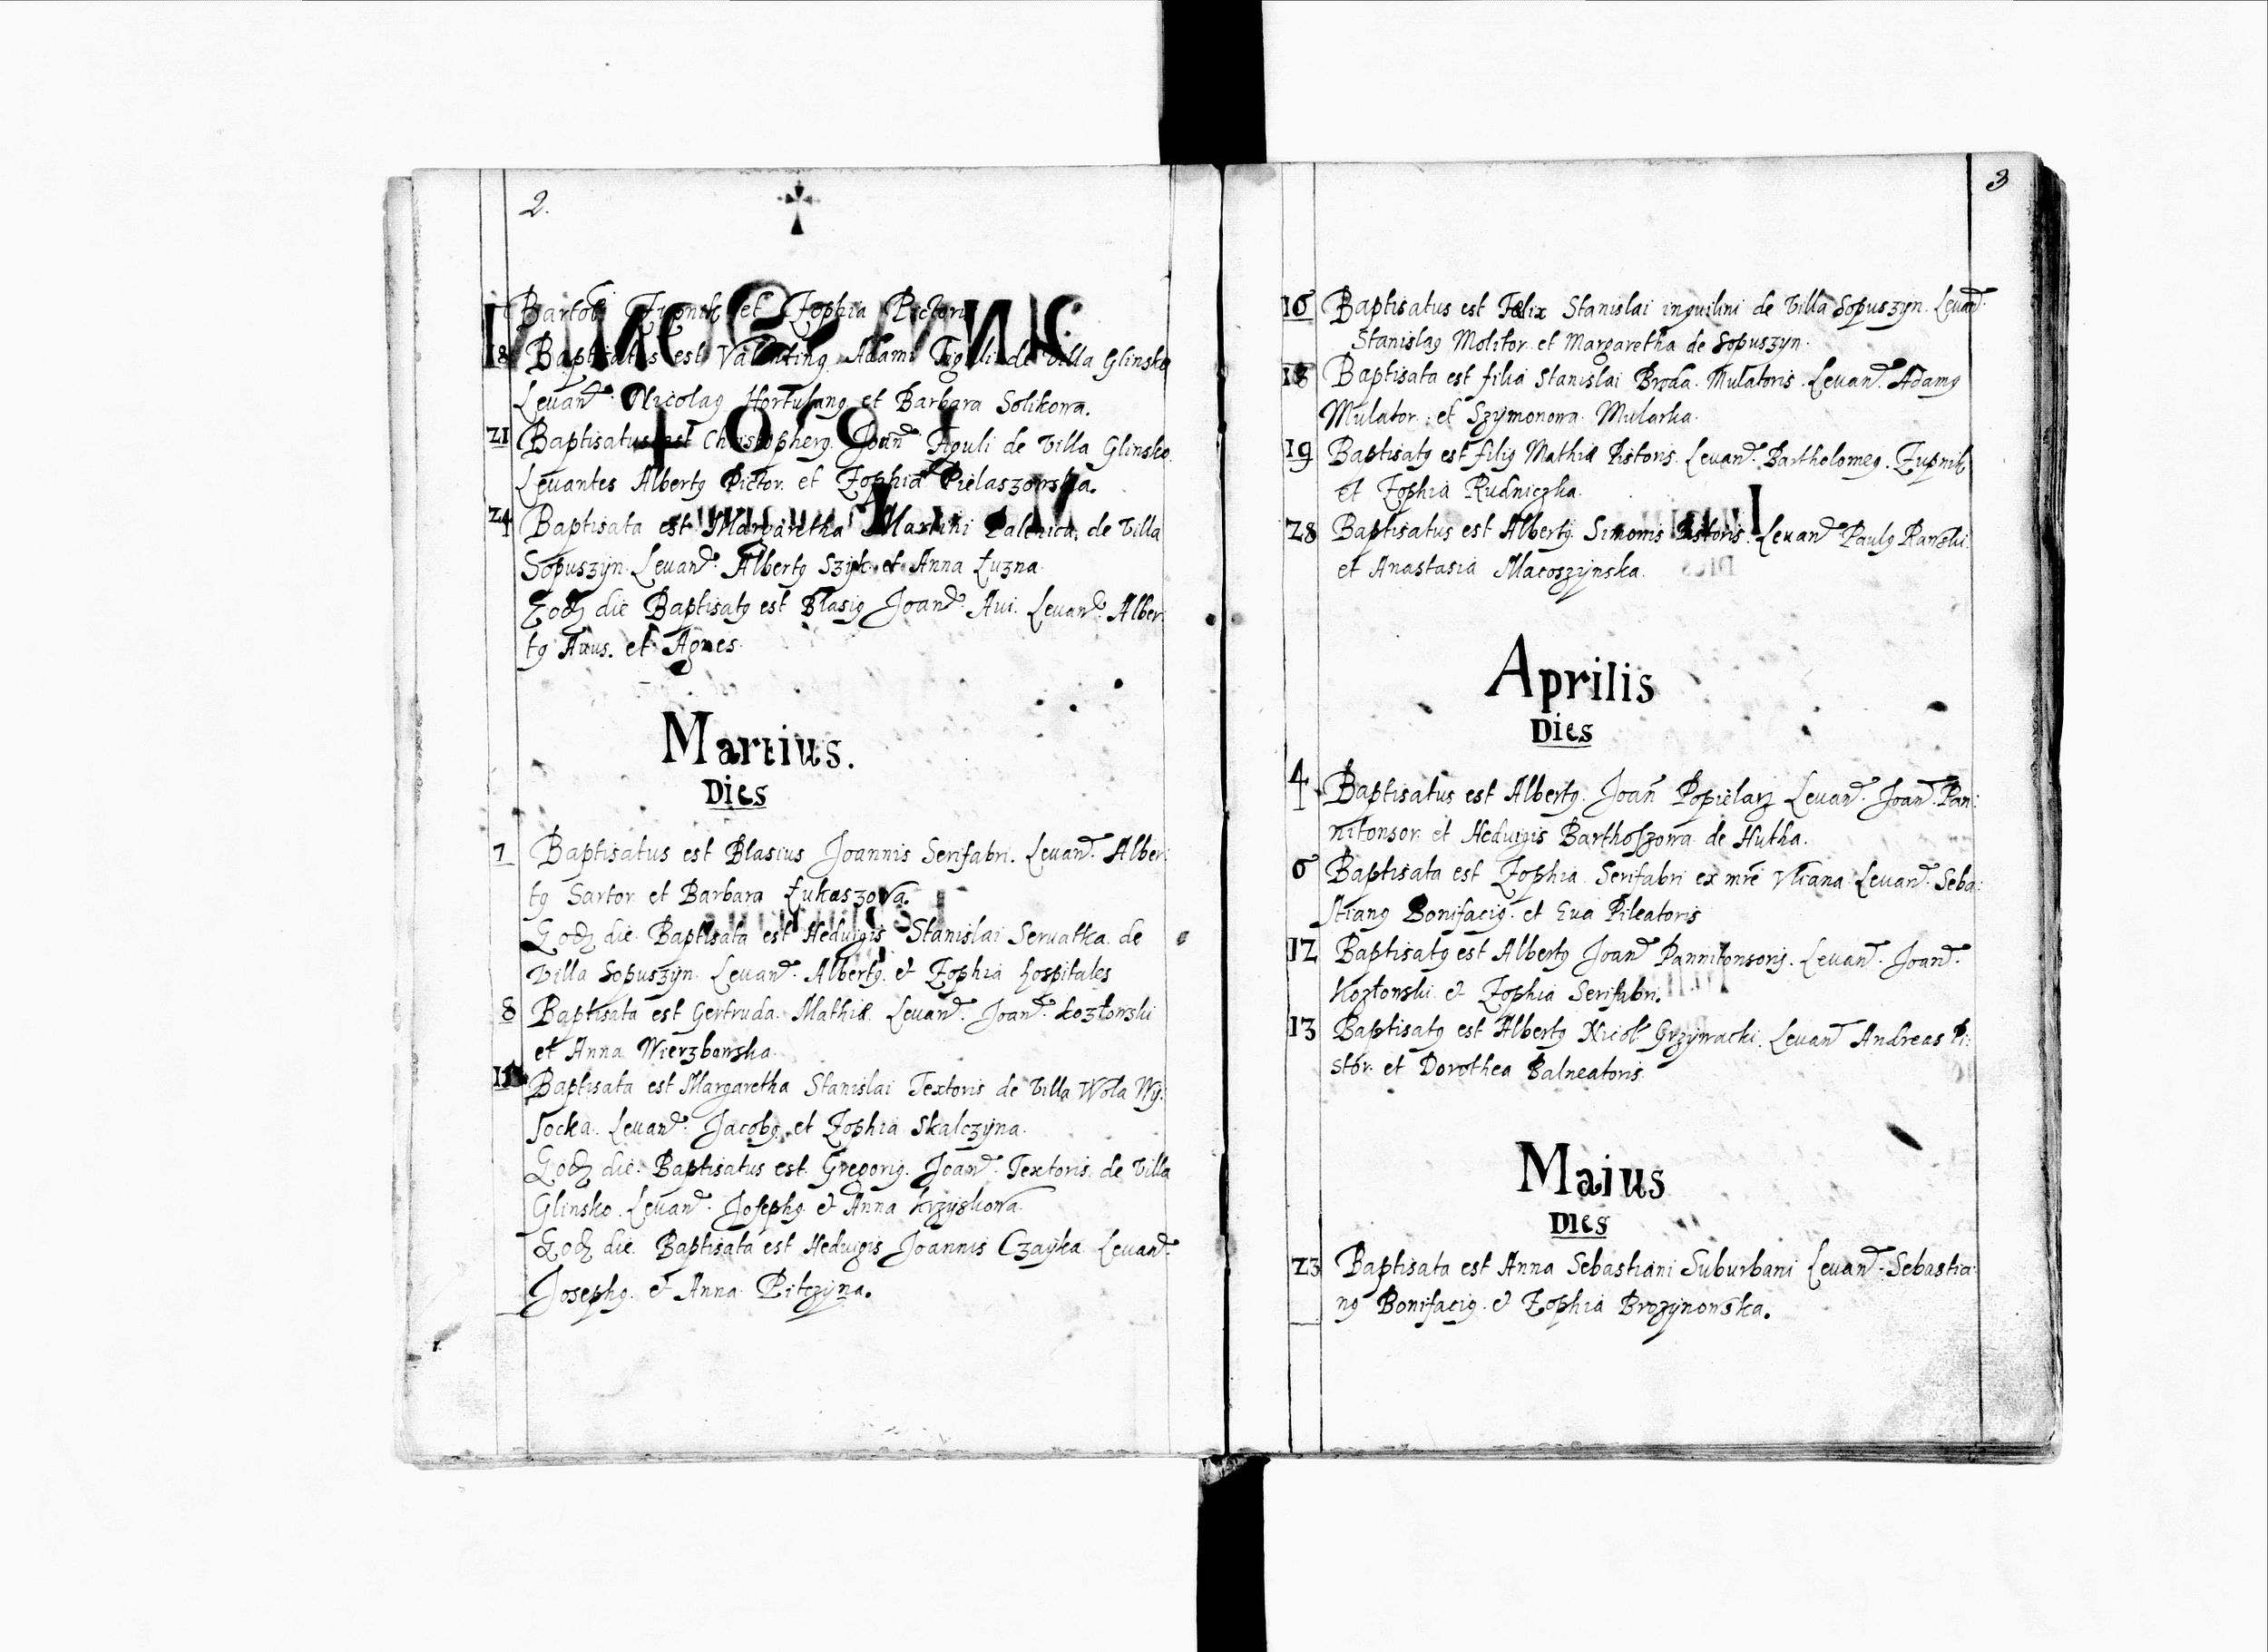 2.
Bartol Zupnik et Zophia Pictoris
18 Baptisatus est Valentinꝰ Adami Figuli de Villa Glinsko
Leuanᵗ Nicolaꝰ Hortulanꝰ et Barbara Solikowa.
21 Baptisatus est Christopherꝰ Joanᵗ Figuli de Villa Glinsko.
Leuantes Albertꝰ Pictor. et Zophia Pielaszowska.
24 Baptisata est Margaretha Martini de Villa
Sopuszyn. Leuanᵗ. Albertꝰ Szyk. et Anna Łuzna.
Eodẽ die Baptisatꝰ est Blasiꝰ Joanᵗ. Aui. Leuanᵗ. Alber:
tꝰ Auus. et Agnes.
Martius.
Dies
7 Baptisatus est Blasius Joannis Serifabri. Leuanᵗ. Alber:
tꝰ Sartor et Barbara Łukaszowa.
Eodẽ die. Baptisata est Heduigis Stanislai Seruatka. de
Villa Sopuszyn. Leuanᵗ. Albertꝰ. et Zophia hospitales
8 Baptisata est Gertruda. Mathiæ. Leuanᵗ. Joanᵗ. Kozłowski
et Anna Wierzbowska.
11 Baptisata est Margaretha Stanislai Textoris de Villa Wola Wy:
socka. Leuanᵗ. Jacobꝰ. et Zophia Skalczyna.
Eodẽ die. Baptisatus est. Gregoriꝰ. Joanᵗ. Textoris. de Villa
Glinsko. Leuanᵗ. Josephꝰ. et Anna Krzyskowa.
Eodẽ die. Baptisata est Heduigis Joannis Czayka. Leuanᵗ.
Josephꝰ. et Anna Pitczyna.
3
16 Baptisatus est Felix Stanislai inquilini de Villa Sopuszyn. Leuanᵗ.
Stanislaꝰ Molitor et Margaretha de Sopuszyn.
18 Baptisata est filia Stanislai Broda. Mulatoris. Leuanᵗ. Adamꝰ
Mulator: et Szymonowa Mularka.
19 Baptisatꝰ est filiꝰ Mathiæ Pistoris. Leuanᵗ. Bartholomeꝰ. Zupnik
et Zophia Rudniczka.
28 Baptisatus est Albertꝰ. Simonis Pistoris. Leuanᵗ Paulꝰ Rawski.
et Anastasia Macoszynska.
Aprilis
Dies
4 Baptisatus est Albertꝰ. Joañ Popielarz Leuanᵗ. Joanᵗ. Pan:
nitonsor. et Heduigis Barthoszowa de Hutha.
6 Baptisata est Zophia Serifabri ex mr̃e Vliana. Leuanᵗ. Seba:
stianꝰ Bonifaciꝰ. et Eua Pileatoris
12 Baptisatꝰ est Albertꝰ Joanᵗ Pannitonsoris. Leuanᵗ. Joanᵗ.
Kozłowski et Zophia Serifabri.
13 Baptisatꝰ est Albertꝰ Nicol. Grzywacki. Leuanᵗ Andreas Pi:
stor. et Dorothea Balneatoris.
Maius
Dies
23 Baptisata est Anna Sebastiani Suburbani Leuanᵗ. Sebastia:
nꝰ Bonifaciꝰ. et Zophia Brozynowska.